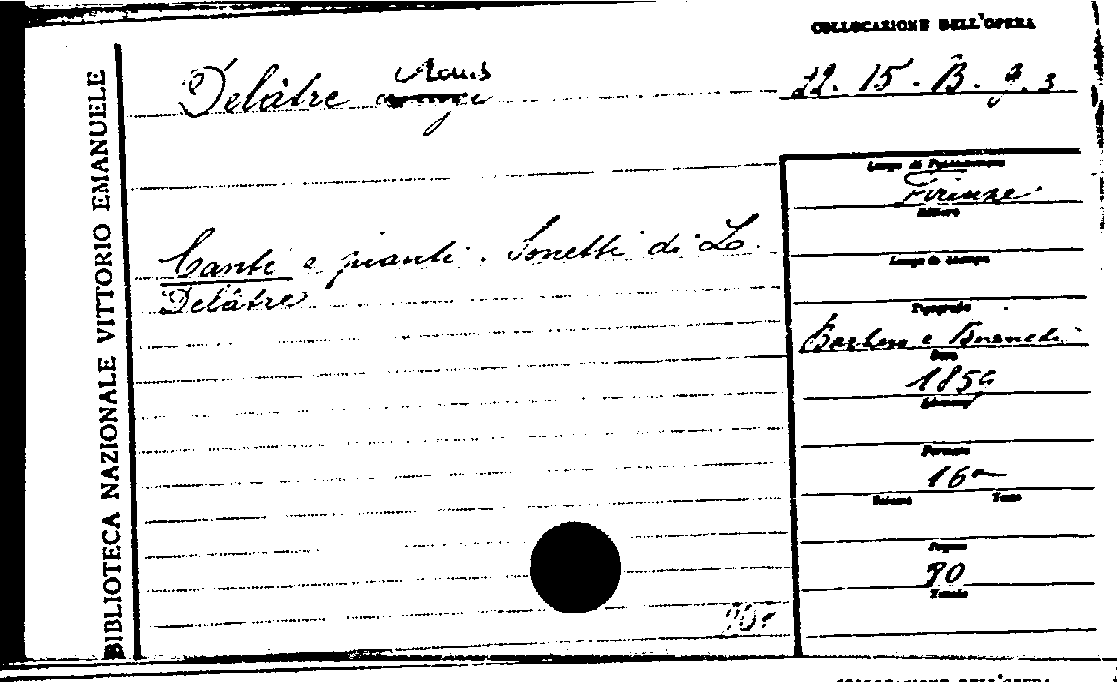 COLLOCAZIONE DELL'OPERA
Delâtre Louis
22. 15. B. 9. 3
BIBLIOTECA NAZIONALE VITTORIO EMANUELE
Luogo di Pubblicazione
Firenze
Editore
Canti e pianti. Sonetti di L.
Delâtre
Luogo di stampa
Tipografia
Barbèra e Bianchi
Data
185
Formato
16°
Volume Tomo
Pagine
90
Tavole
COLLOCAZIONE DELL'OPERA